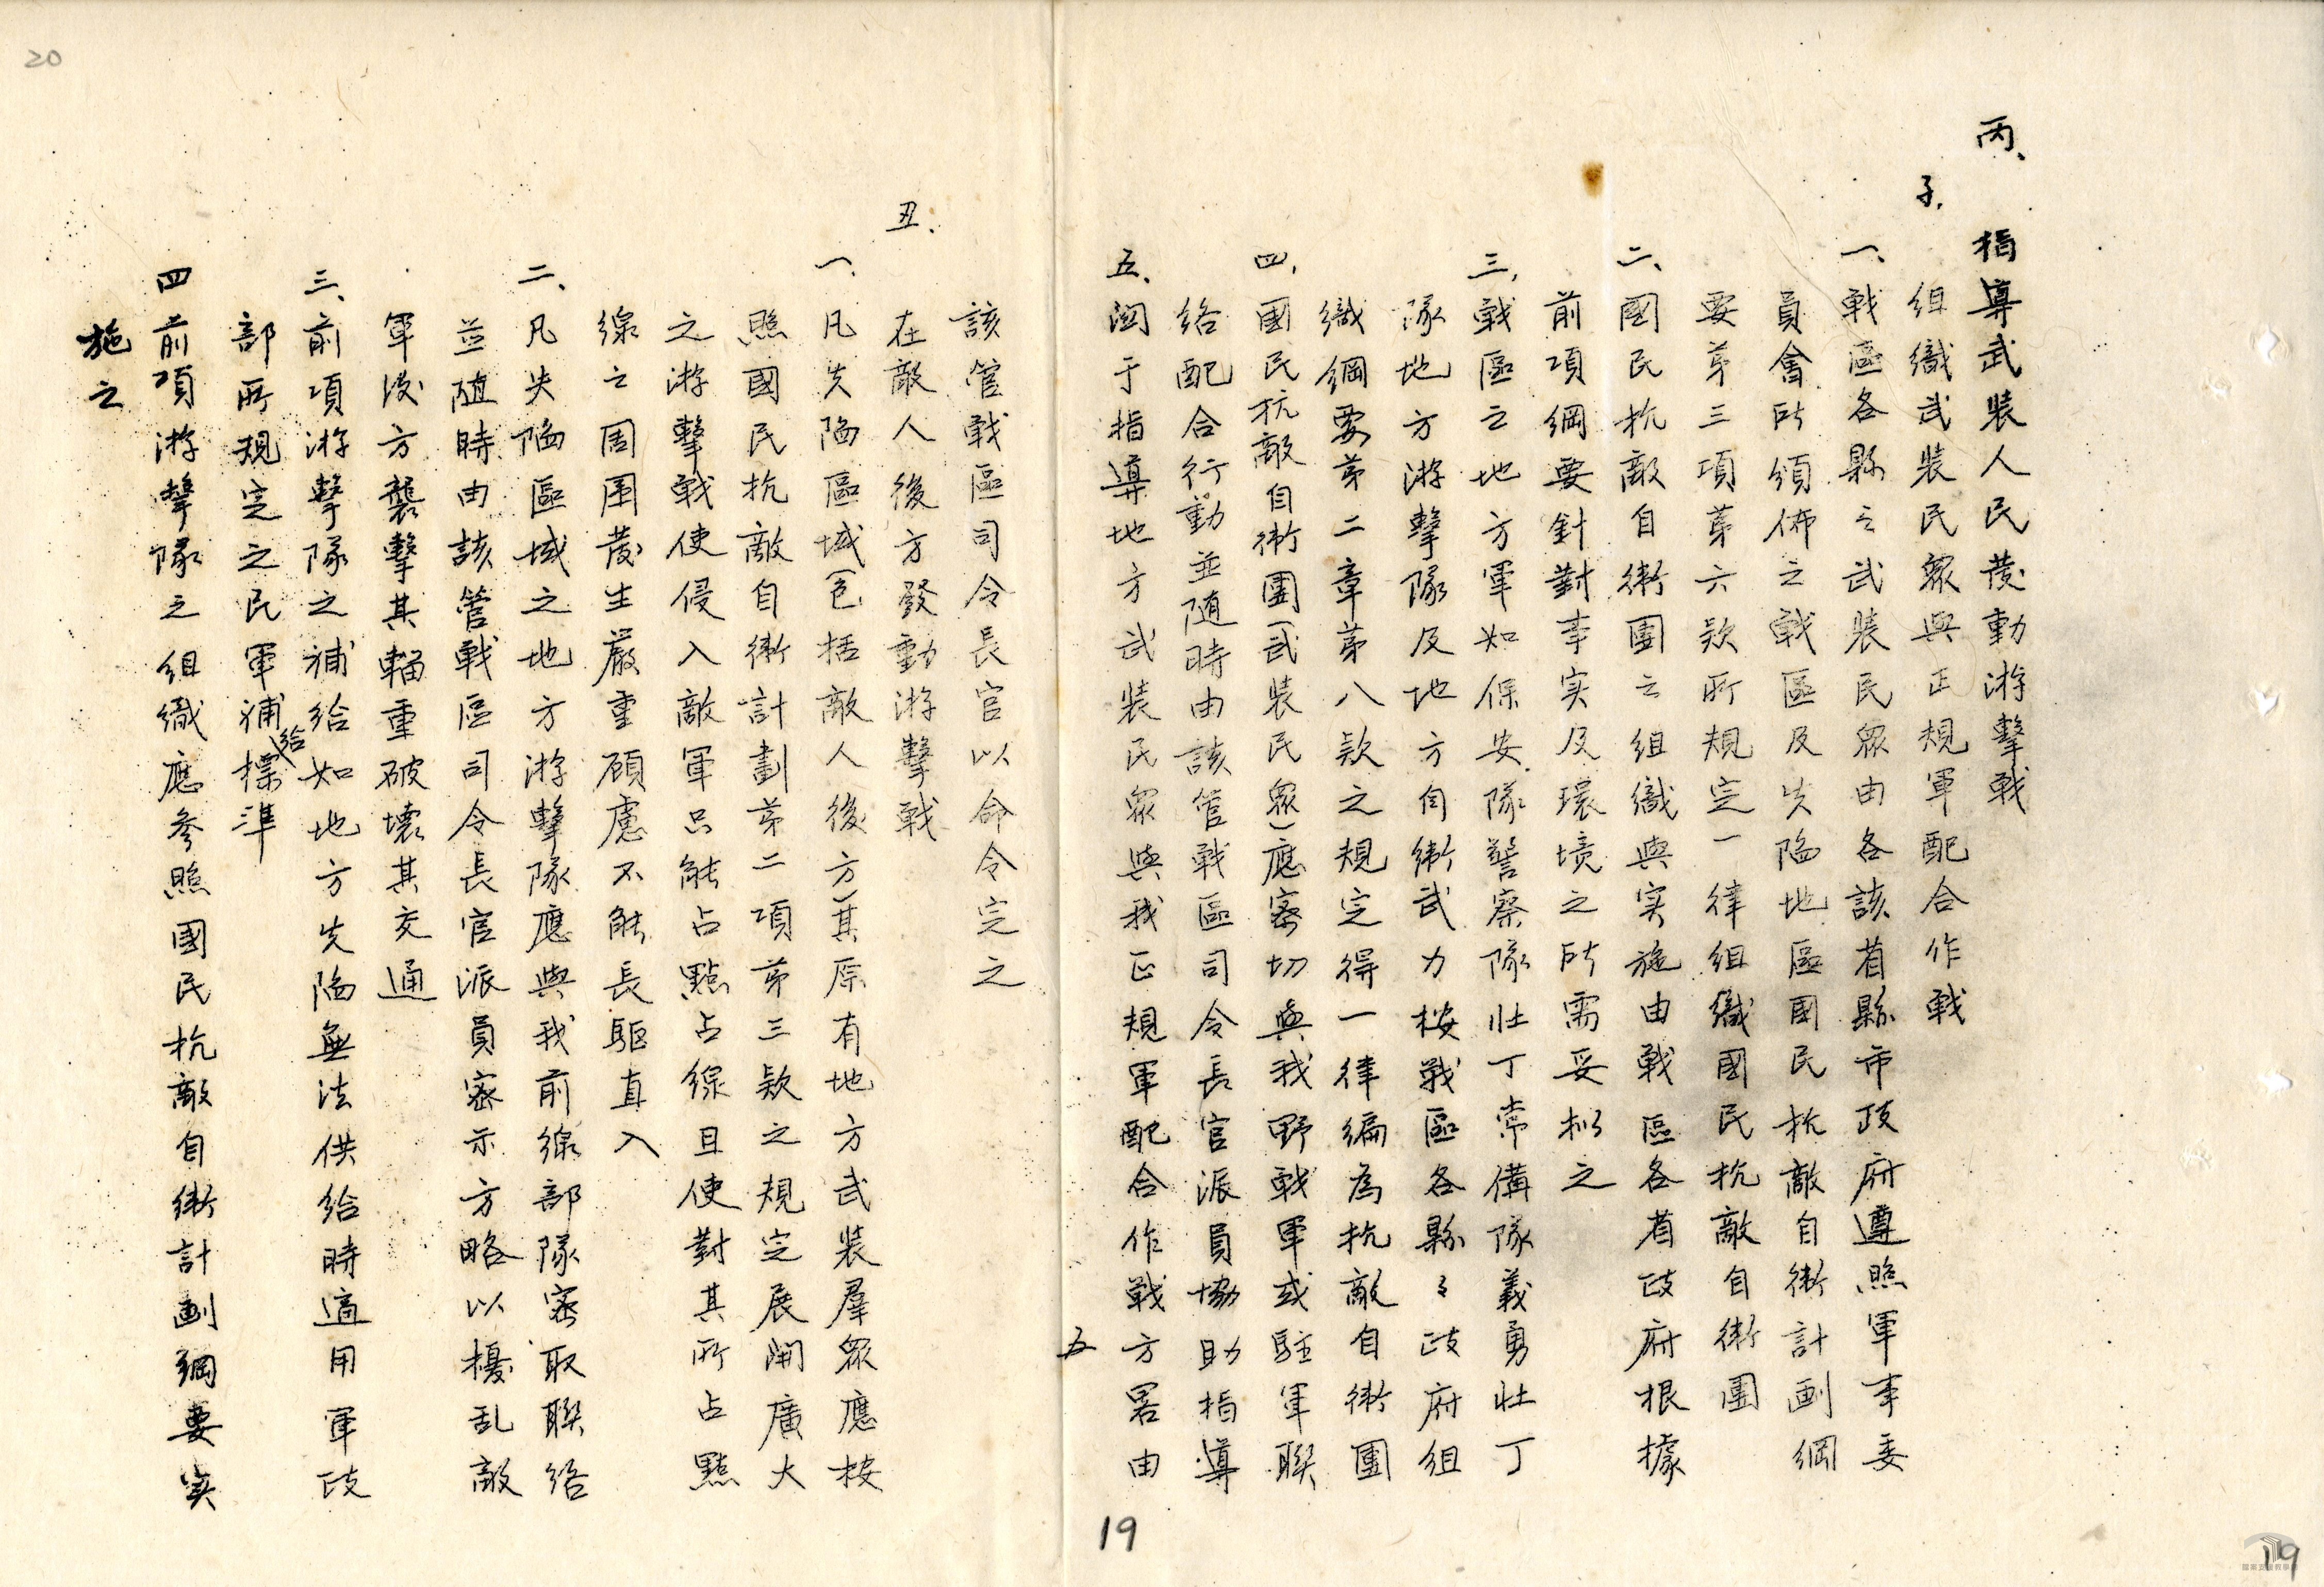 丙、指導武裝人民發動游擊戰
子、組織武裝民眾與正規軍配合作戰
一、戰區各縣之武裝民眾由各該省縣市政府遵照軍事委
員會所頒佈之戰區及失陷地區國民抗敵自衛計劃綱
要第三項第六款所規定一律組織國民抗敵自衛團
二、國民抗敵自衛團之組織與实施由戰區各省政府根據
前項綱要針對事实及環境之所需妥擬之
三、戰區之地方軍如保安隊警察隊壯丁常備隊義勇壯丁
隊地方游擊隊及地方自衛武力按戰區各縣々政府組
織綱要第二章第八款之規定得一律編為抗敵自衛團
四、國民抗敵自衛團(武裝民眾)應密切與我野戰軍或駐軍聯
絡配合行動並随時由該管戰區司令長官派員協助指導
五、関于指導地方武裝民眾與我正規軍配合作戰方畧由
五
19
該管戰區司令長官以命令定之
丑、在敵人後方發動游擊戰
一、凡失陷區域(包括敵人後方)其原有地方武裝羣眾應按
照國民抗敵自衛計劃第二項第三款之規定展開廣大
之游擊戰使侵入敵軍只能占點占線且使對其所占點
線之周圍發生嚴重顧慮不能長驅直入
二、凡失陷區域之地方游擊隊應與我前線部隊密取聯络
並随時由該管戰區司令長官派員密示方略以擾乱敵
軍後方襲擊其輜重破壞其交通
三、前項游擊隊之補給如地方失陷無法供給時適用軍政
部所規定之民軍補給標準
四 前項游擊隊之組織應參照國民抗敵自衛計劃綱要实
施之
20
19